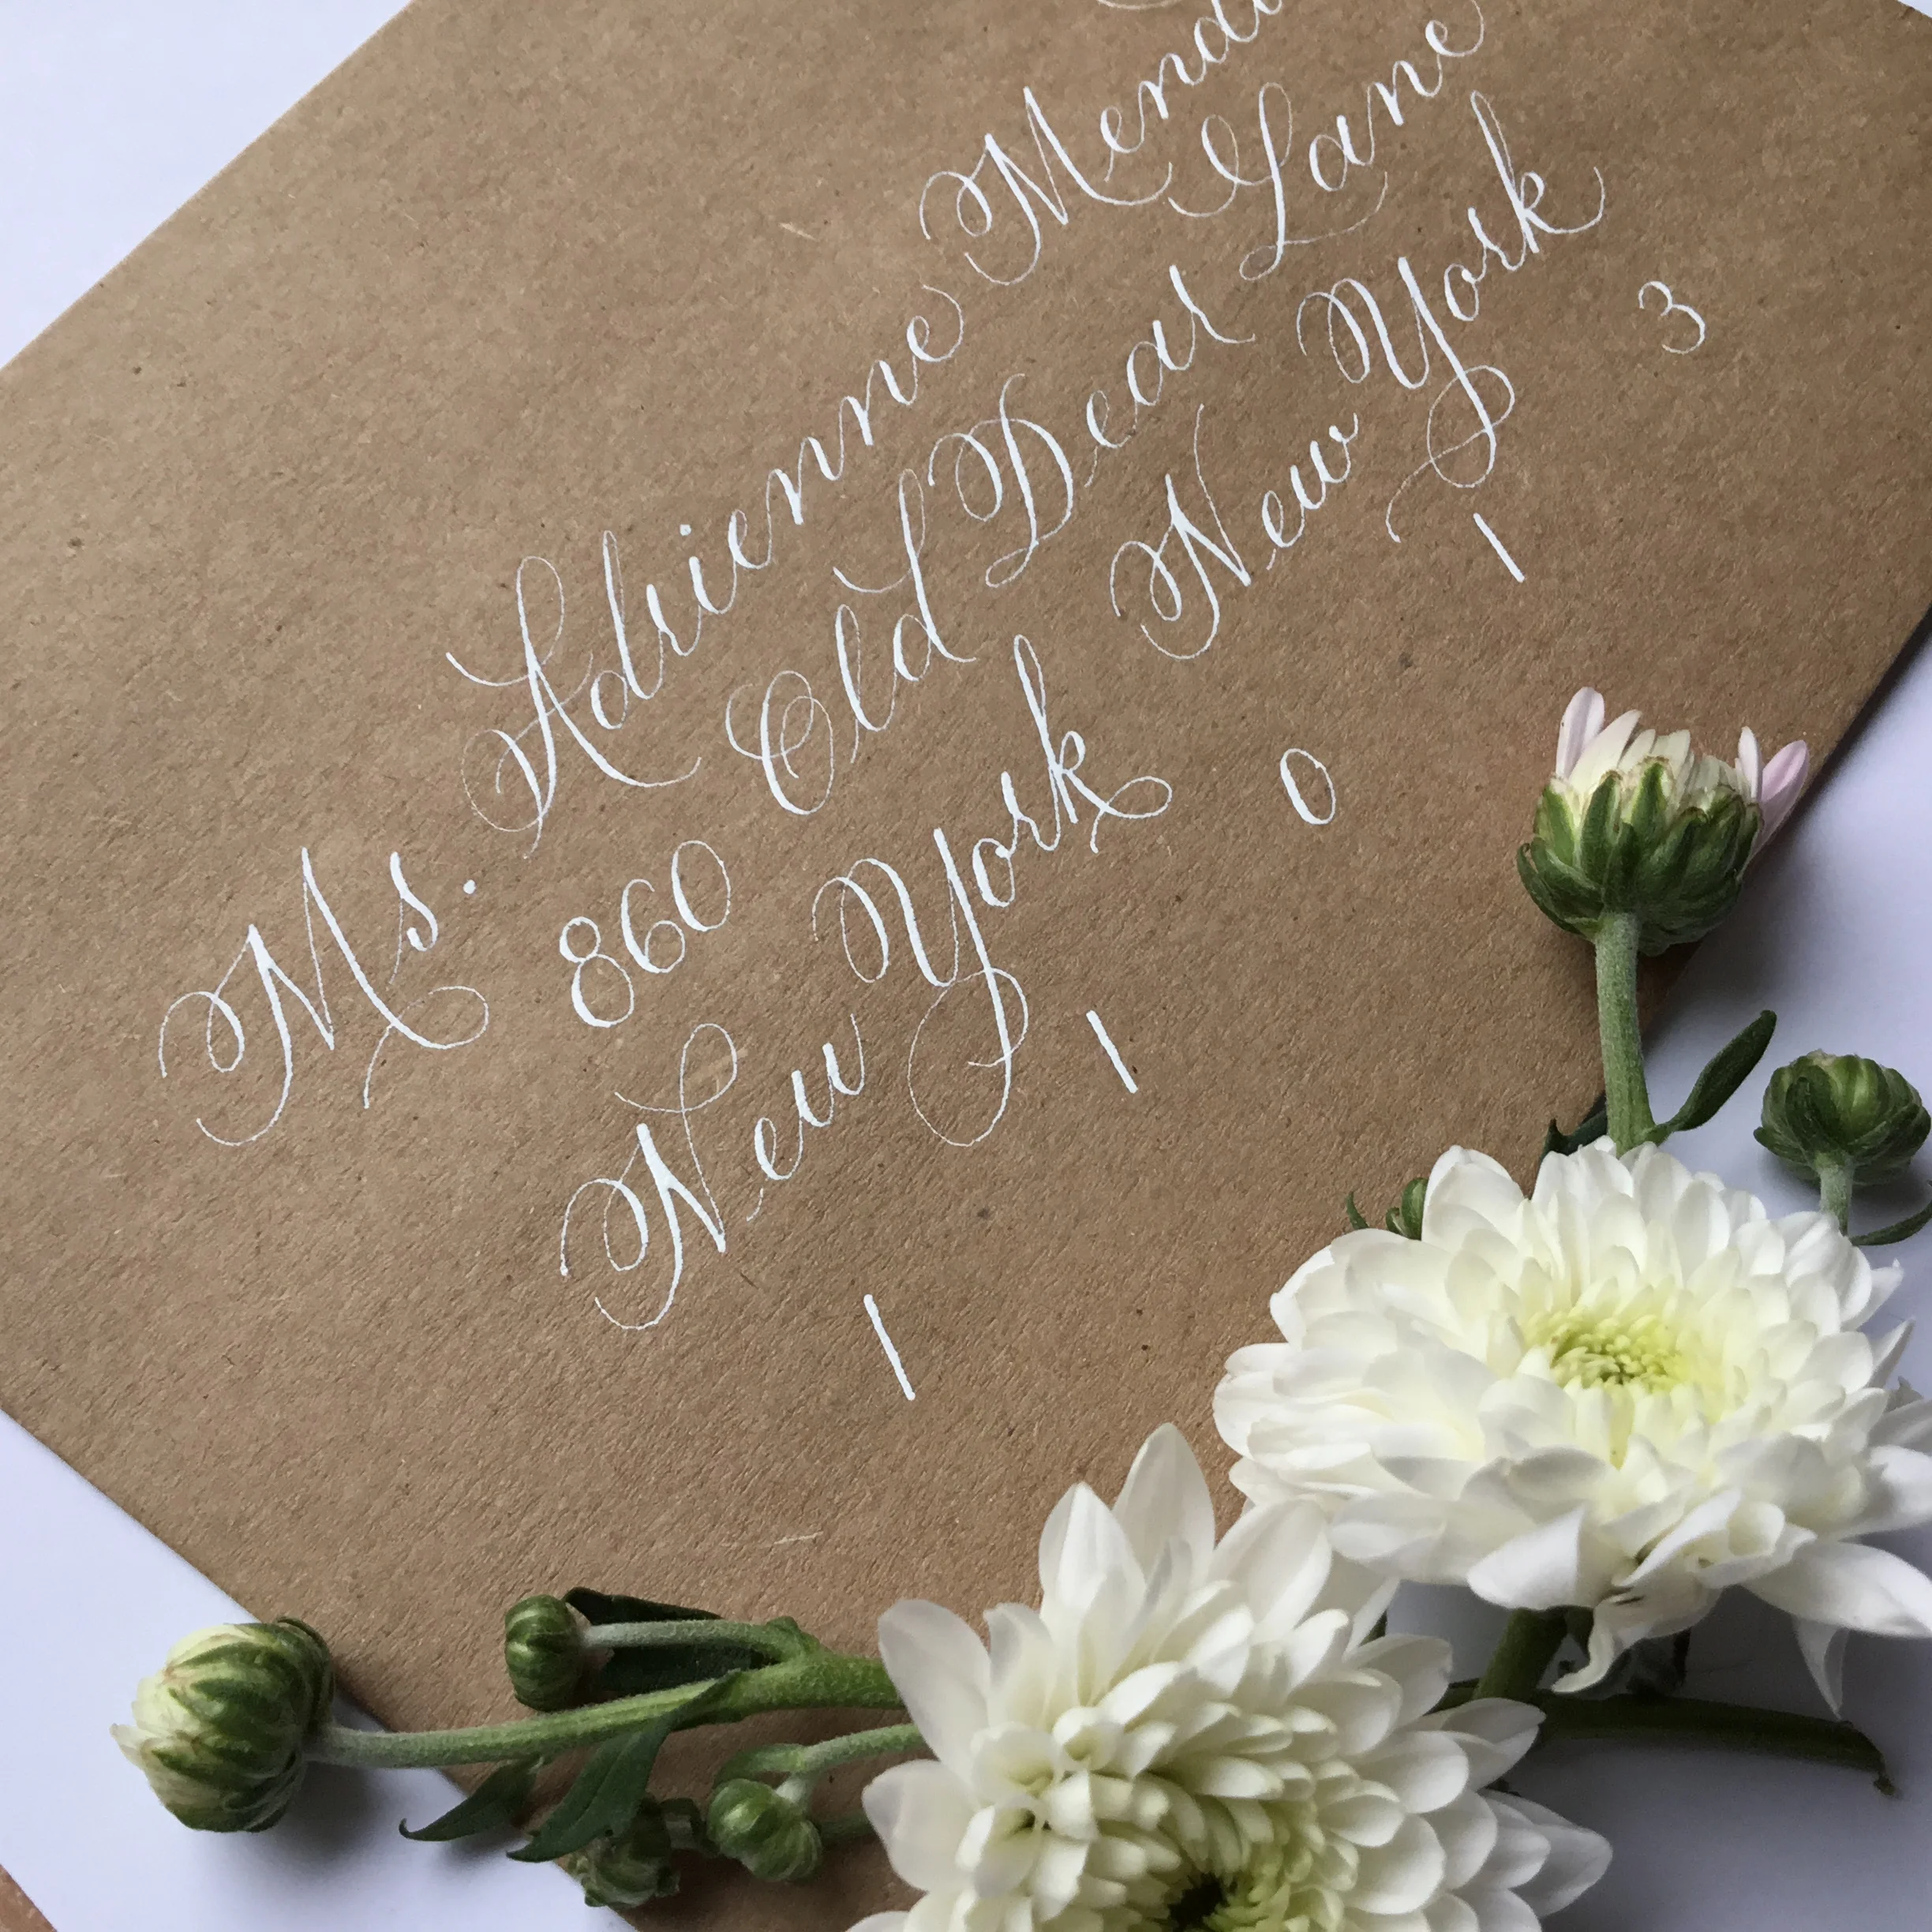 Ms. Adrienne
860 Old Deal Lane
New York New York
1 1 0 1 3